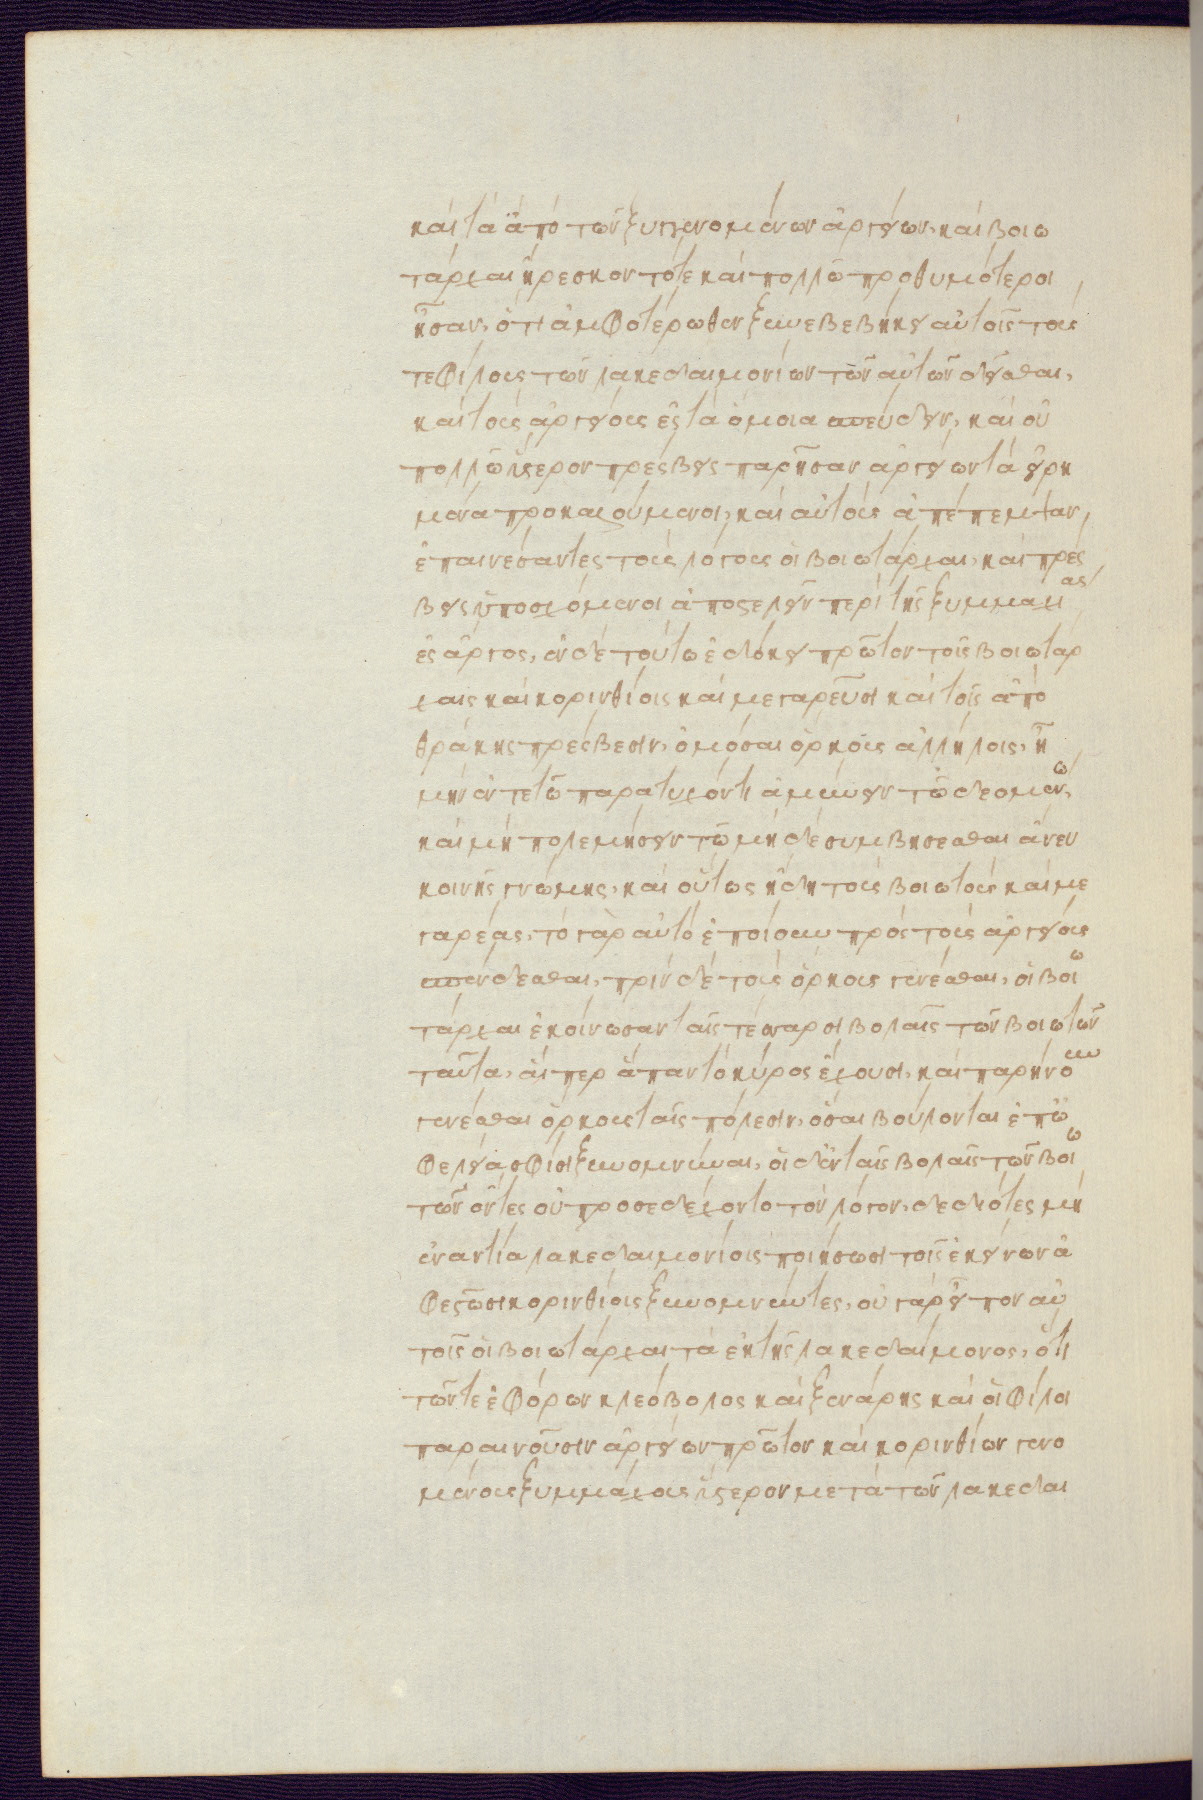 καὶ τὰ ἀπὸ τῶν ξυγγενομένων ἀργείων, καὶ βοιω
τάρχαι ἠρέσκοντό τε καὶ πολλῶ προθυμότεροι
ἦσαν, ὅτι ἀμφοτέρωθεν ξυνεβεβήκει αὐτοῖς τούς
τε φίλους τῶν λακεδαιμονίων τῶν αὐτῶν δεῖσθαι,
καὶ τοὺς ἀργείους ἐς τὰ ὅμοια σπεύδειν, καὶ οὐ
πολλῶ ὕστερον πρέσβεις παρῆσαν ἀργείων τὰ εἰρη
μένα προκαλούμενοι, καὶ αὐτοὺς ἀπέπεμψαν,
ἐπαινέσαντες τοὺς λόγους οἱ βοιωτάρχαι, καὶ πρέσ
βεις ὑποσχόμενοι ἀποστελεῖν περὶ τῆς ξυμμαχίας
ἐς ἄργος, ἐν δὲ τούτω ἐδόκει πρῶτον τοῖς βοιωτάρ
χαις καὶ κορινθίοις καὶ μεγαρεῦσι καὶ τοῖς ἀπὸ
θράκης πρέσβεσιν, ὀμόσαι ὅρκους ἀλλήλοις, ἦ
μὴν ἔν τε τῶ παρατυχόντι ἀμύνειν τῶ δεομένω,
καὶ μὴ πολεμήσειν τῶ μηδὲ συμβήσεσθαι ἄνευ
κοινῆς γνώμης, καὶ οὕτως ἤδη τοὺς βοιωτοὺς καὶ με
γαρέας, τὸ γὰρ αὐτὸ ἐποίουν πρὸς τοὺς ἀργείους
σπένδεσθαι, πρὶν δὲ τοὺς ὅρκους γενέσθαι, οἱ βοιω
τάρχαι ἐκοίνωσαν ταῖς τέσσαρσι βολαῖς τῶν βοιωτῶν
ταῦτα, αἵπερ ἅπαν τὸ κύρος ἔχουσι, καὶ παρήνουν
γενέσθαι ὅρκους ταῖς πόλεσιν, ὅσαι βούλονται ἐπ' ὠ
φελεία σφίσι ξυνομνύναι, οἱ δ' ἐν ταῖς βολαῖς τῶν βοιω
τῶν ὄντες οὐ προσεδέχοντο τὸν λόγον, δεδιότες μὴ
ἐναντία λακεδαιμονίοις ποιήσωσι τοῖς ἐκείνων ἀ
φεστῶσι κορινθίοις ξυνομνύντες, οὐ γὰρ εἶπον αὐ
τοῖς οἱ βοιωτάρχαι τὰ ἐκ τῆς λακεδαίμονος, ὅτι
τῶν τε ἐφόρων κλεόβολος καὶ ξενάρης καὶ οἱ φίλοι
παραινοῦσιν ἀργείων πρῶτον καὶ κορινθίων γενο
μένους ξυμμάχους ὕστερον μετὰ τῶν λακεδαι